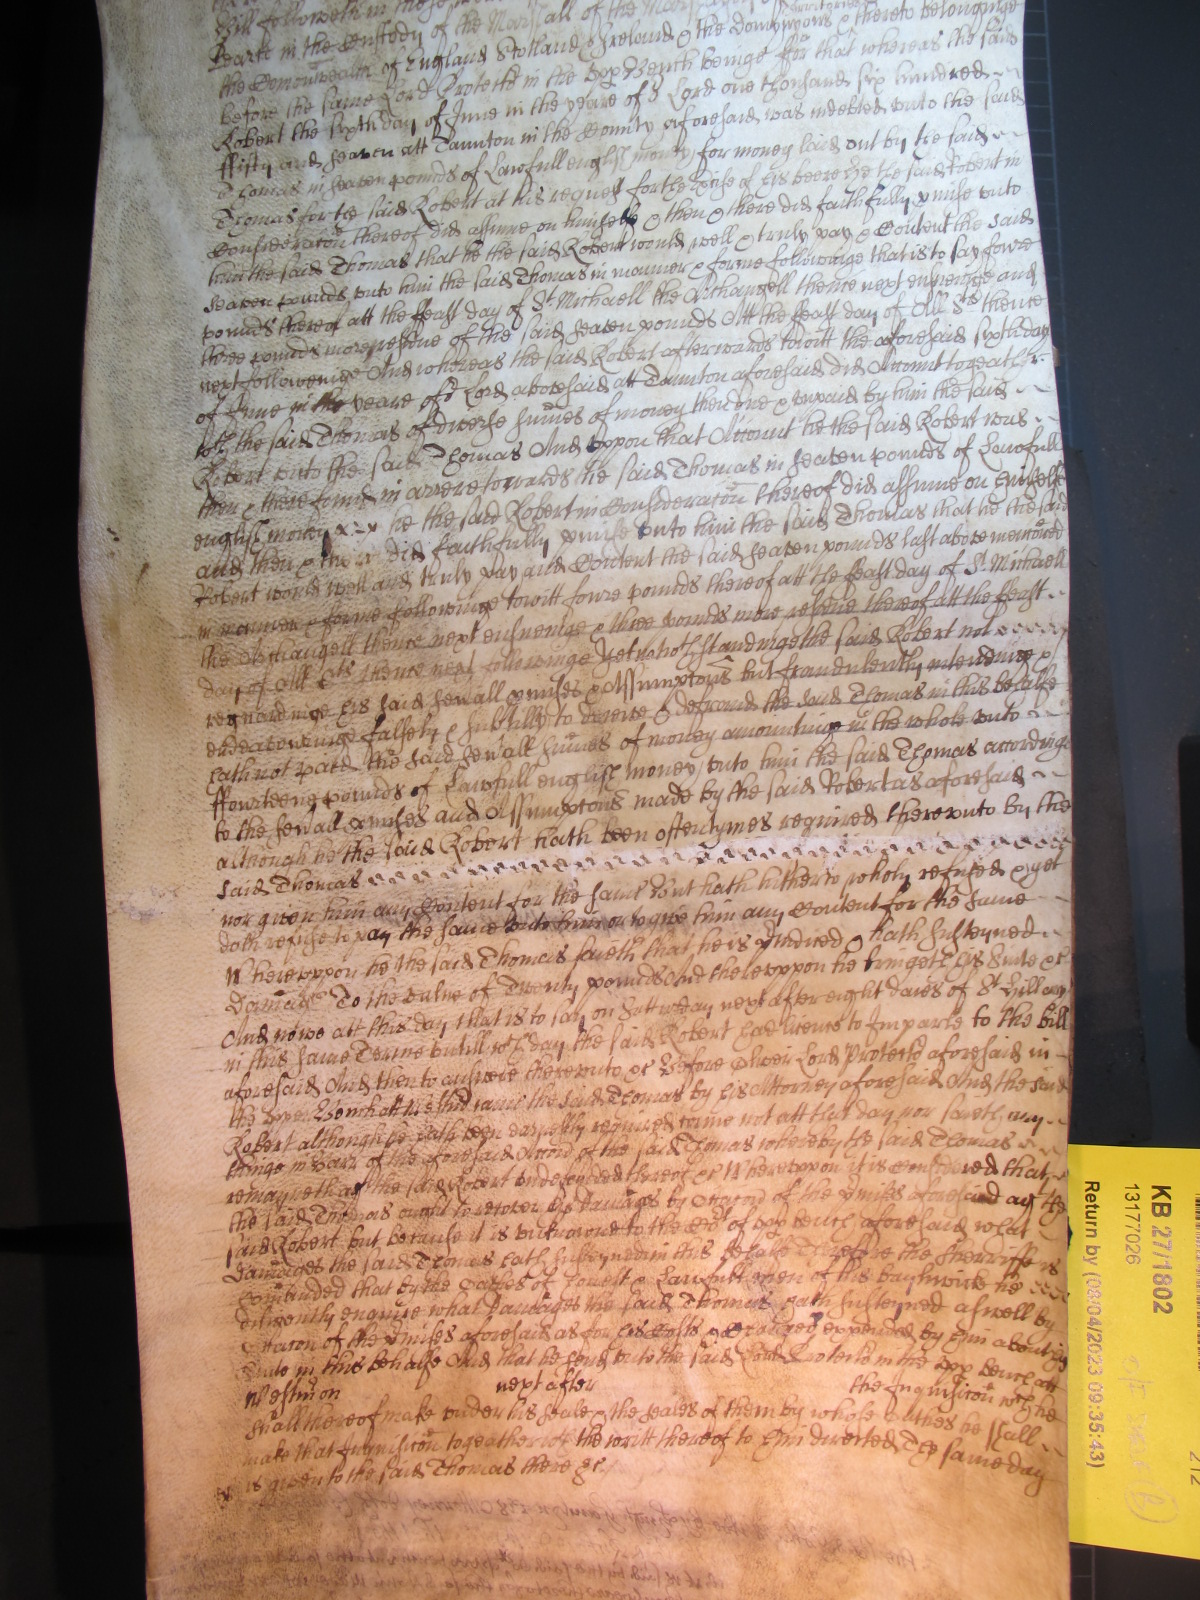 Bill followeth in these
Pearte in the Custody of the Marshall of the
the Comonwealth of England Scotland & Ireland & the Dominions thereto belonginge
before the same Lord Protector in the Upp Bench beinge ffor that whereas the said
Robert the sixth day of June in the yeare of or Lord one thousand six hundred
ffifty and seaven att Taunton in the County aforesaid was indebted unto the said
Thomas in seaven pounds of Lawfull english money for money laid out by the said
Thomas for the said Robert at his request for the Excise of his beere hee the said Robert in
Consideracon thereof did assume on himselfe & then & there did faithfully pmise unto
him the said Thomas that he the said Robert would well & truly pay & Content the said
seaven pounds unto him the said Thomas in manner & forme followinge that is to say fowre
pounds thereof att the feast day of St Michaell the Archangell thence next ensueinge and
three pounds more residue of the said seaven pounds Att the feast day of All Sts thence
next followeinge And whereas the said Robert afterwards towitt the aforesaid sixth day
of June in the yeare of or Lord abovesaid att Taunton aforesaid did Accompt togeather
wth the said Thomas of diverse sumes of money then due & unpaid by him the said
Robert unto the said Thomas And uppon that Accompt he the said Robert was
then & there found in arrere towards the said Thomas in seaven pounds of Lawfull
english money he the said Robert in Consideracon thereof did assume on himselfe
and then & there did faithfully pmise unto him the said Thomas that he the said
Robert would well and truly pay and Content the said seaven pounds last above menconed
in manner & forme followinge towitt fowre pounds thereof att the feast day of St Michaell
the Archangell thence next ensueinge & three pounds more residue thereof att the feast
day of All Sts thence next followinge Yet notwthstandinge the said Robert not
regardinge his said sevall pmises & Assumptons but fraudulently intendinge &
endeavouringe falsely & subtilly to deceive & defraud the said Thomas in this behalfe
hath not paid the said sevall sumes of money amountinge in the whole unto
ffowrteene pounds of Lawfull english money unto him the said Thomas accordinge
to the sevall pmises and Assumptons made by the said Robert as aforesaid
although he the said Robert hath been oftentymes required thereunto by the
said Thomas
nor given him any Content for the same But hath hitherto wholy refused & yet
doth refuse to pay the same unto him or to give him any Content for the same
Whereuppon he the said Thomas saieth that he is piudiced & hath susteyned
Damage To the value of Twenty pounds And thereuppon he bringeth his Suite &c
And nowe att this day that is to say on Satturday next after eight daies of St Hillary
in this same Terme untill wch day the said Robert had licence to Imparle to the bill
aforesaid And then to answere thereunto &c Before Oliver Lord Protector aforesaid in
the Upper Bench att Westmr came the said Thomas by his Attorney aforesaid And the said
Robert although he hath been solemnly required came not att that day nor saieth any
thinge in Barr of the aforesaid Accon of the said Thomas whereby the said Thomas
remayneth agt the said Robert undefended thereof &c Whereuppon it is considered that
the said Thomas ought to recover his damages by Occasion of the pmises aforesaid agt the
said Robert but because it is unknowne to the Cort of Upp bench aforesaid what
damages the said Thomas hath susteyned in this behalfe Therefore the Sherriffe is
Comanded that by the Oathes of Honest & Lawfull men of his bayliwicke he
diligently enquire what damages the said Thomas hath susteyned aswell by
Occasion of the pmises aforesaid as for his Costs & Charges expended by him about his
Suite in this behalfe And that he send unto the said Lord Protector in the Upp bench att
Westmr on next after the Inquisicon wch he
shall thereof make under his seale & the seales of them by whose Oathes he shall
make that Inquisicon togeather wth the writt thereof to him directed The same day
is given to the said Thomas there &c
KB 27/1802
13177026
Return by (08/04/2023 09:35:43)
212